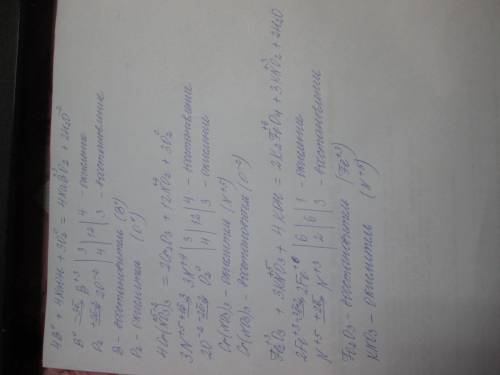 4B⁰ + 4NaOH + 3O₂⁰ = 4NaB⁺³O₂ + 2H₂O⁻²
B⁰ -3e B⁺³ | 3 | 12 | 4 - окисление
O₂ +4e 2O⁻² | 4 | | 3 - восстановление
B - восстановитель (B⁰)
O₂ - окислитель (O⁰)
4Cr(N⁺⁵O₃⁻²)₃ = 2Cr₂O₃ + 12N⁺⁴O₂ + 3O₂⁰
3N⁺⁵ +3e 3N⁺⁴ | 3 | 12 | 4 - восстановление
2O⁻² -4e O₂⁰ | 4 | | 3 - окисление
Cr(NO₃)₃ - окислитель (N⁺⁵)
Cr(NO₃)₃ - восстановитель (O⁻²)
Fe₂⁺³O₃ + 3KN⁺⁵O₃ + 4KOH = 2K₂Fe⁺⁶O₄ + 3KN⁺³O₂ + 2H₂O
2Fe⁺³ 2Fe⁺⁶ | 6 | 6 | 1 - окисление
N⁺⁵ +2e N⁺³ | 2 | | 3 - восстановление
Fe₂O₃ - восстановитель (Fe⁺³)
KNO₃ - окислитель (N⁺⁵)